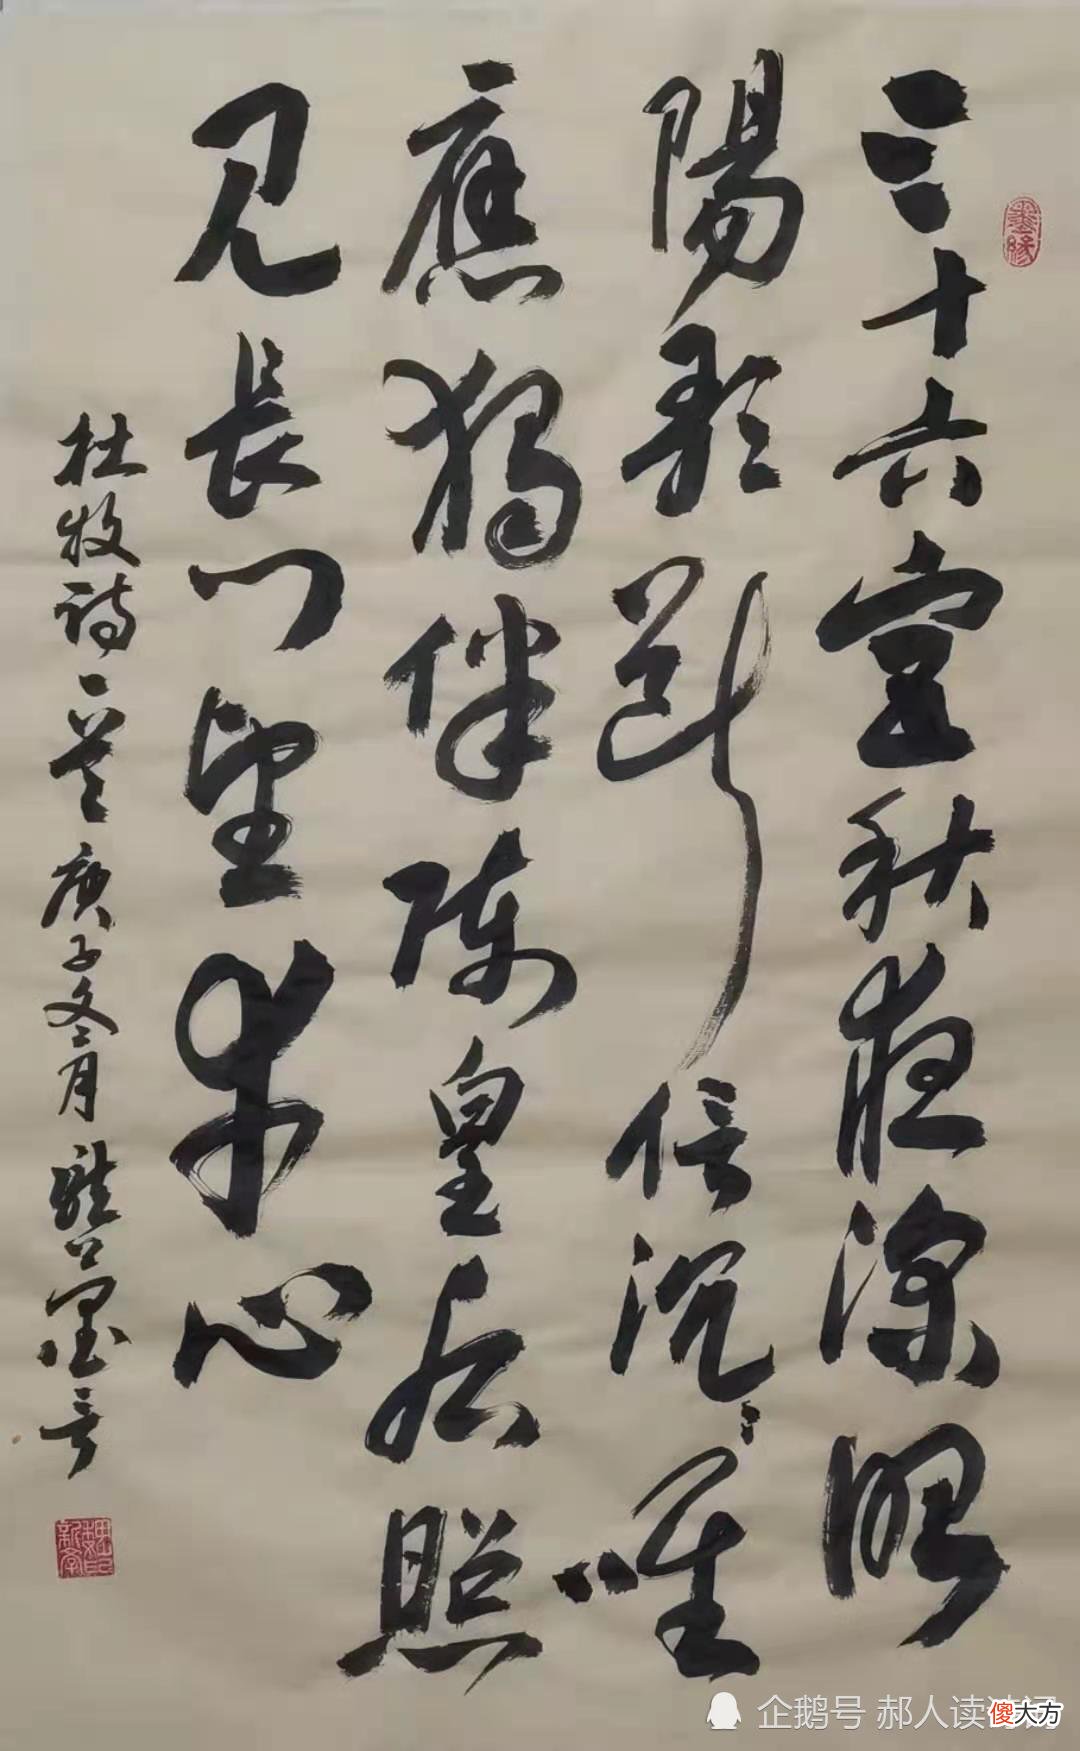 墨缘
三十六宫秋夜深昭
陽歌断信沉〻唯
應獨伴陈皇后照
见長门望幸心
杜牧诗一首 庚子冬月
企鹅号 郝人读
傻大方